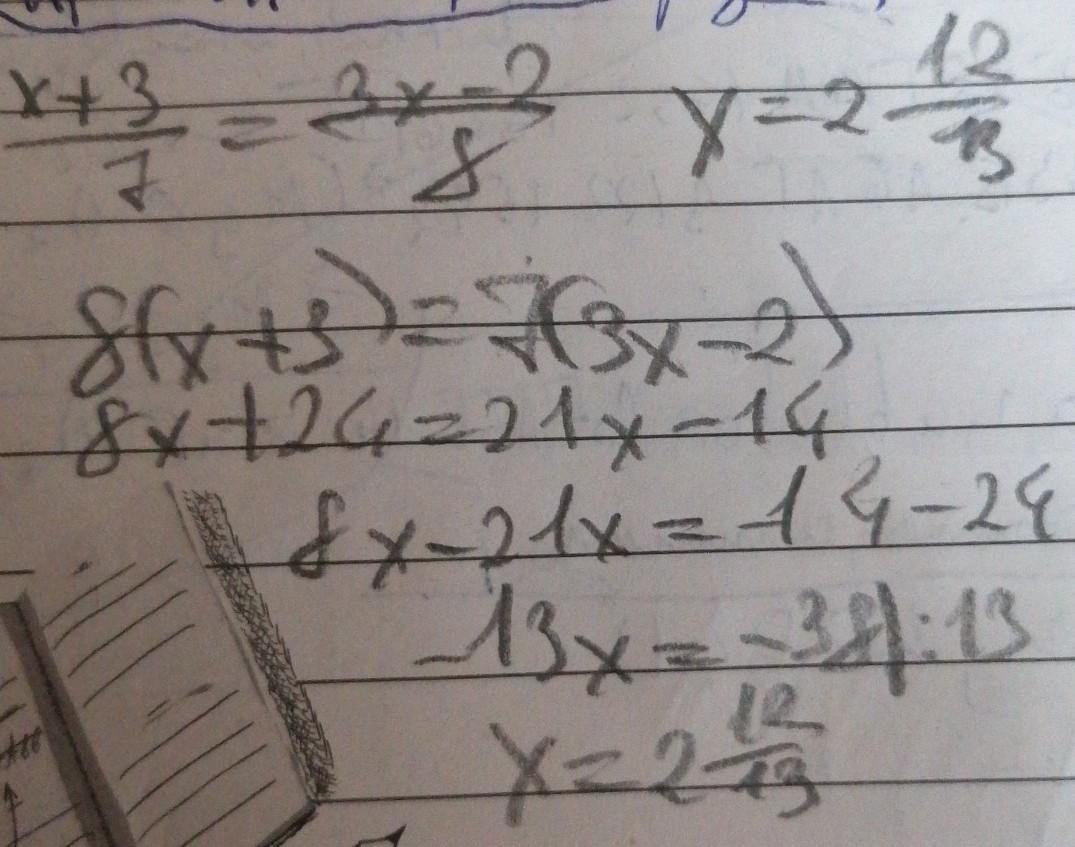 x+3/7 = 3x-2/8 x=2 12/13
8(x+3)=7(3x-2)
8x+24=21x-14
8x-21x=-14-24
-13x=-38|:13
x=2 12/13